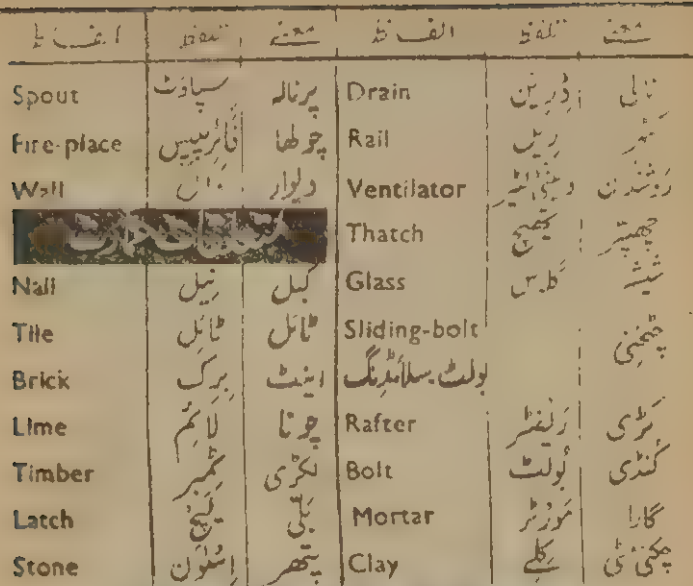 الفاظ تلفظ معنے الفاظ تلفظ معنے
Spout سپاوٹ پرنالہ Drain ڈرین نالی
Fire-place فائرپلیس چولھا Rail ریل
Wall وال دیوار Ventilator وینٹی لیٹر روشندان
Thatch تھیچ چھپر
Nail نیل کیل Glass گلاس شیشہ
Tile ٹائل ٹائل Sliding-bolt چٹخنی
Brick برک اینٹ بولٹ سلائڈنگ
Lime لائم چونا Rafter ریفٹر کڑی
Timber ٹمبر لکڑی Bolt بولٹ کنڈی
Latch لیچ بلی Mortar مورٹر گارا
Stone اسٹون پتھر Clay کلے چکنی مٹی